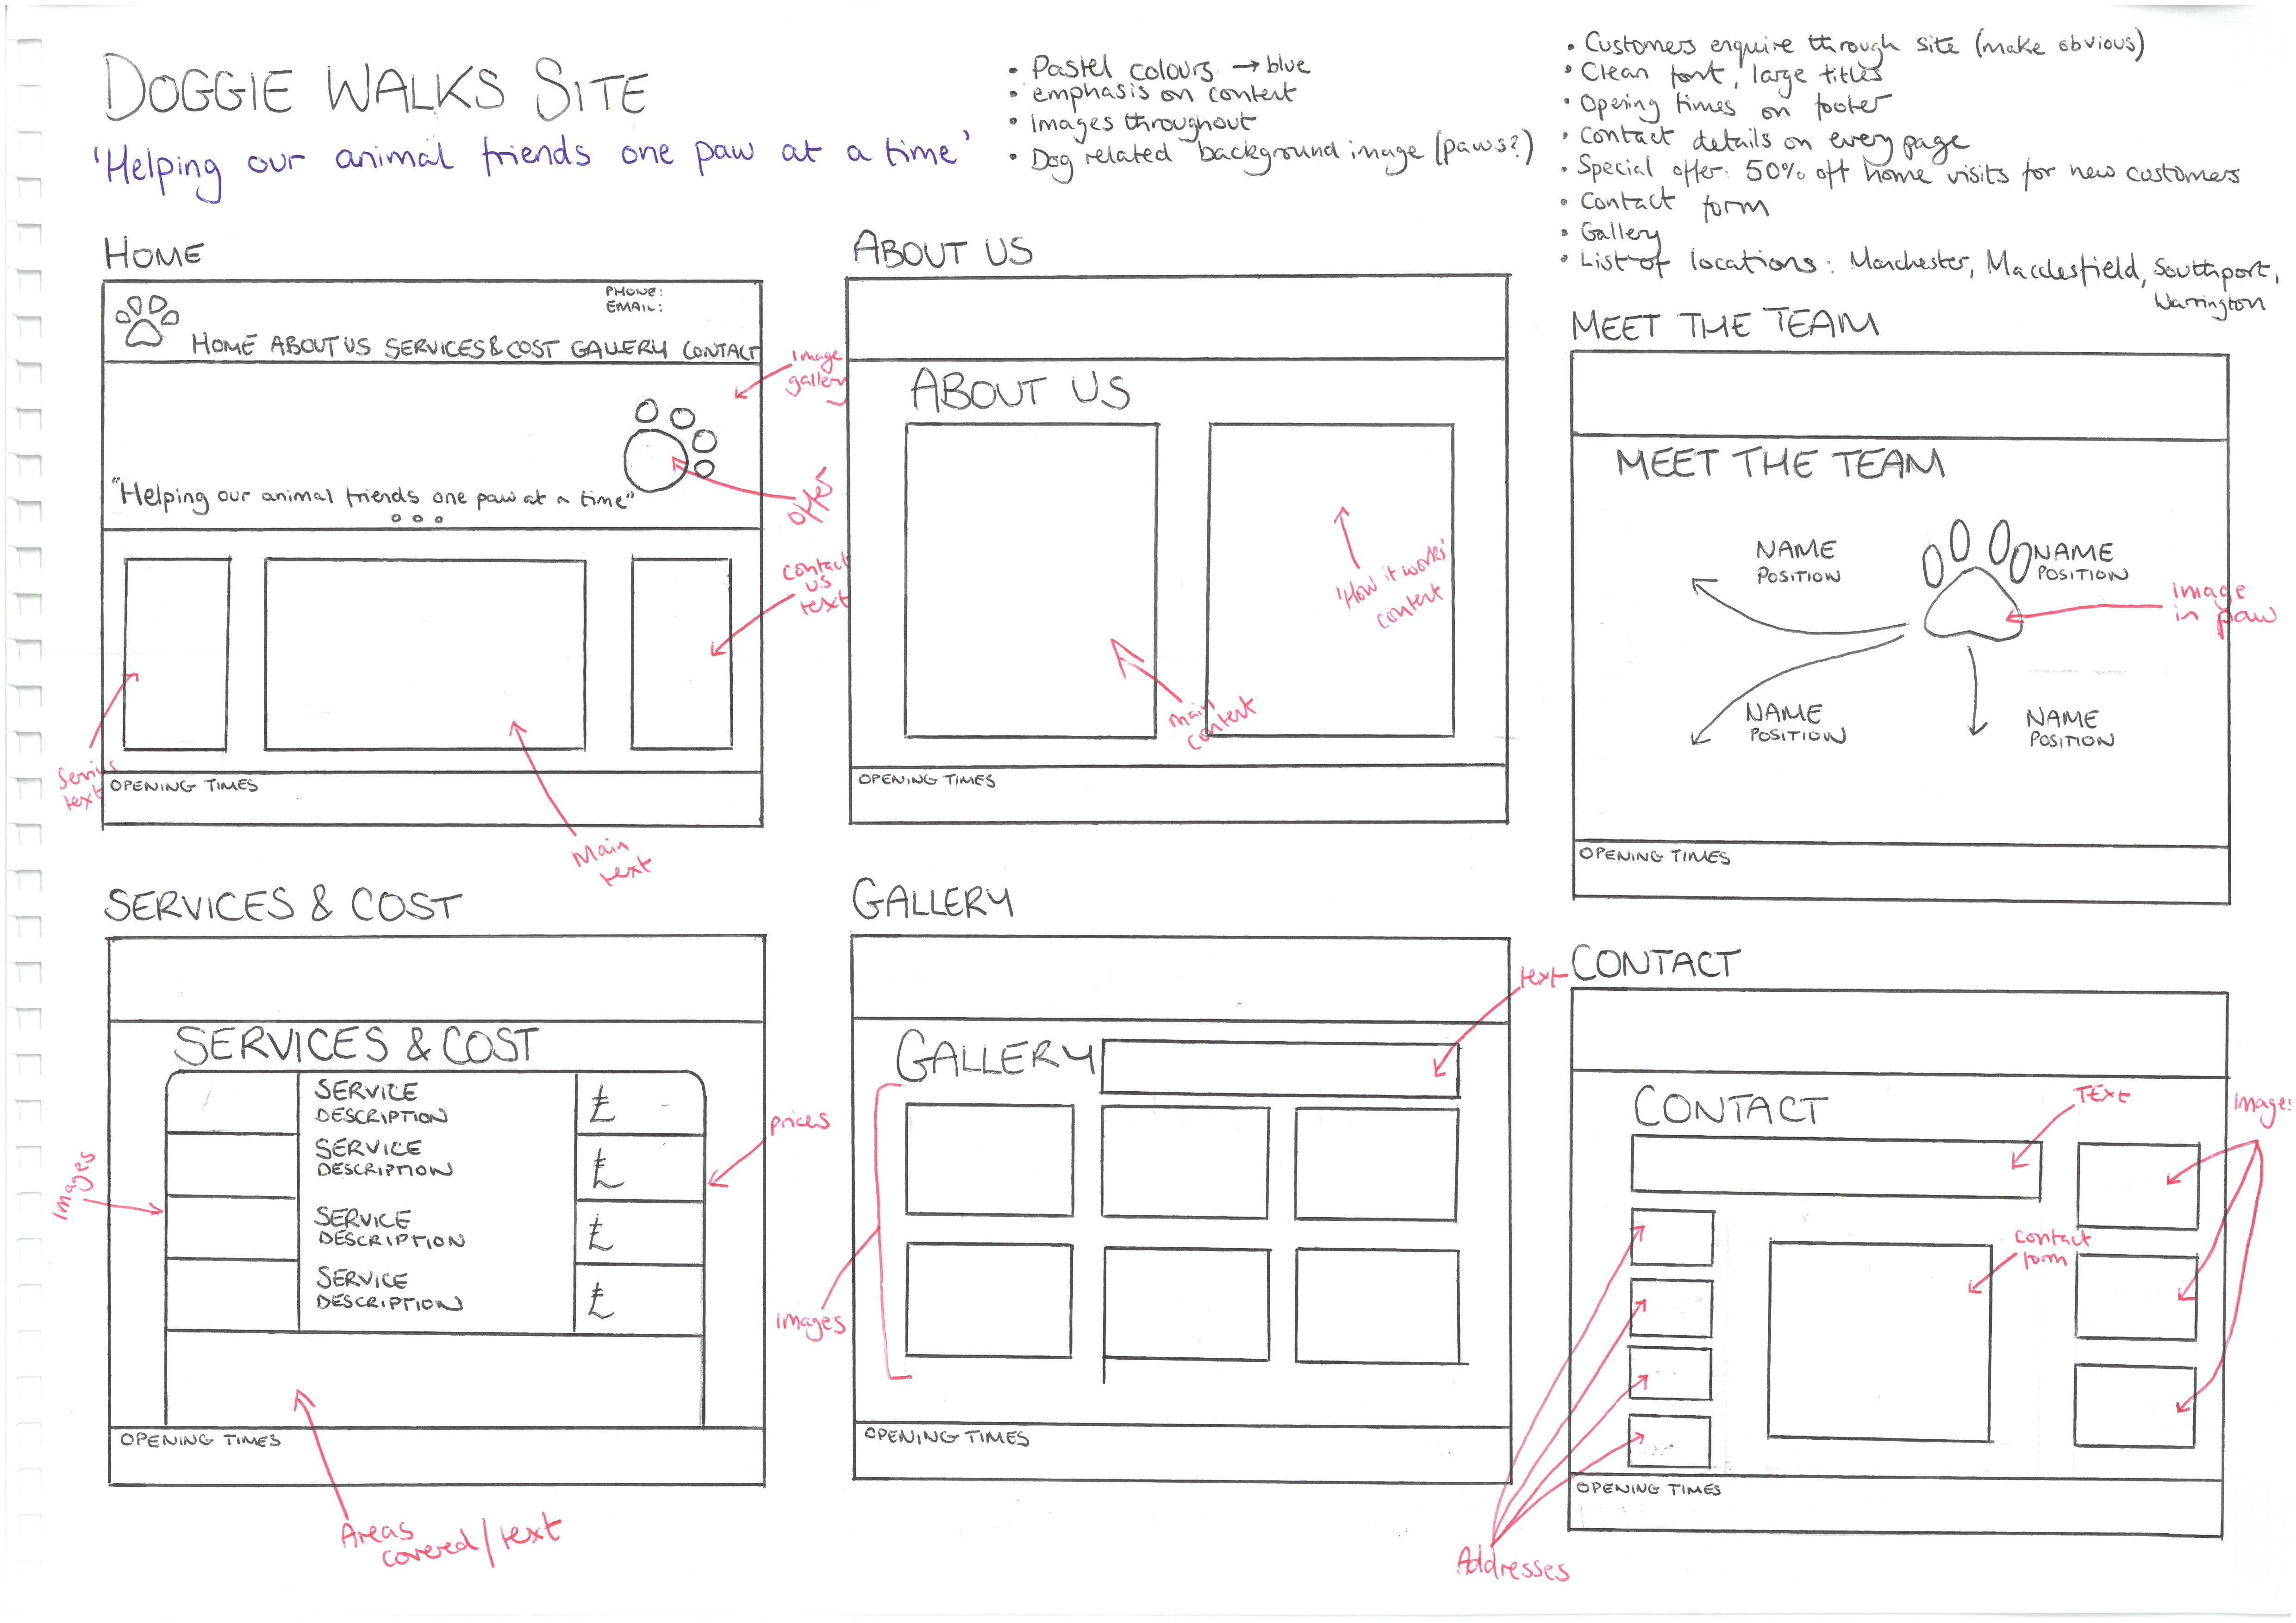 DOGGIE WALKS SITE
'Helping our animal friends one paw at a time'
• Pastel colours → blue
• emphasis on content
• Images throughout
• Dog related background image (paws?)
• Customers enquire through site (make obvious)
• Clean font, large titles
• Opening times on footer
• Contact details on every page
• Special offer: 50% off home visits for new customers
• Contact form
• Gallery
• List of locations: Manchester, Macclesfield, Southport,
Warrington
HOME
PHONE:
EMAIL:
HOME ABOUT US SERVICES & COST GALLERY CONTACT
Image
gallery
"Helping our animal friends one paw at a time"
offer
contact
us
text
Service
text
OPENING TIMES
Main
text
ABOUT US
ABOUT US
'How it works'
content
main
content
OPENING TIMES
MEET THE TEAM
MEET THE TEAM
NAME
POSITION
NAME
POSITION
image
in paw
NAME
POSITION
NAME
POSITION
OPENING TIMES
SERVICES & COST
SERVICES & COST
SERVICE
DESCRIPTION
£
SERVICE
DESCRIPTION
£
SERVICE
DESCRIPTION
£
SERVICE
DESCRIPTION
£
Images
prices
OPENING TIMES
Areas
covered/text
GALLERY
text
GALLERY
images
OPENING TIMES
CONTACT
CONTACT
TEXT
images
contact
form
OPENING TIMES
Addresses